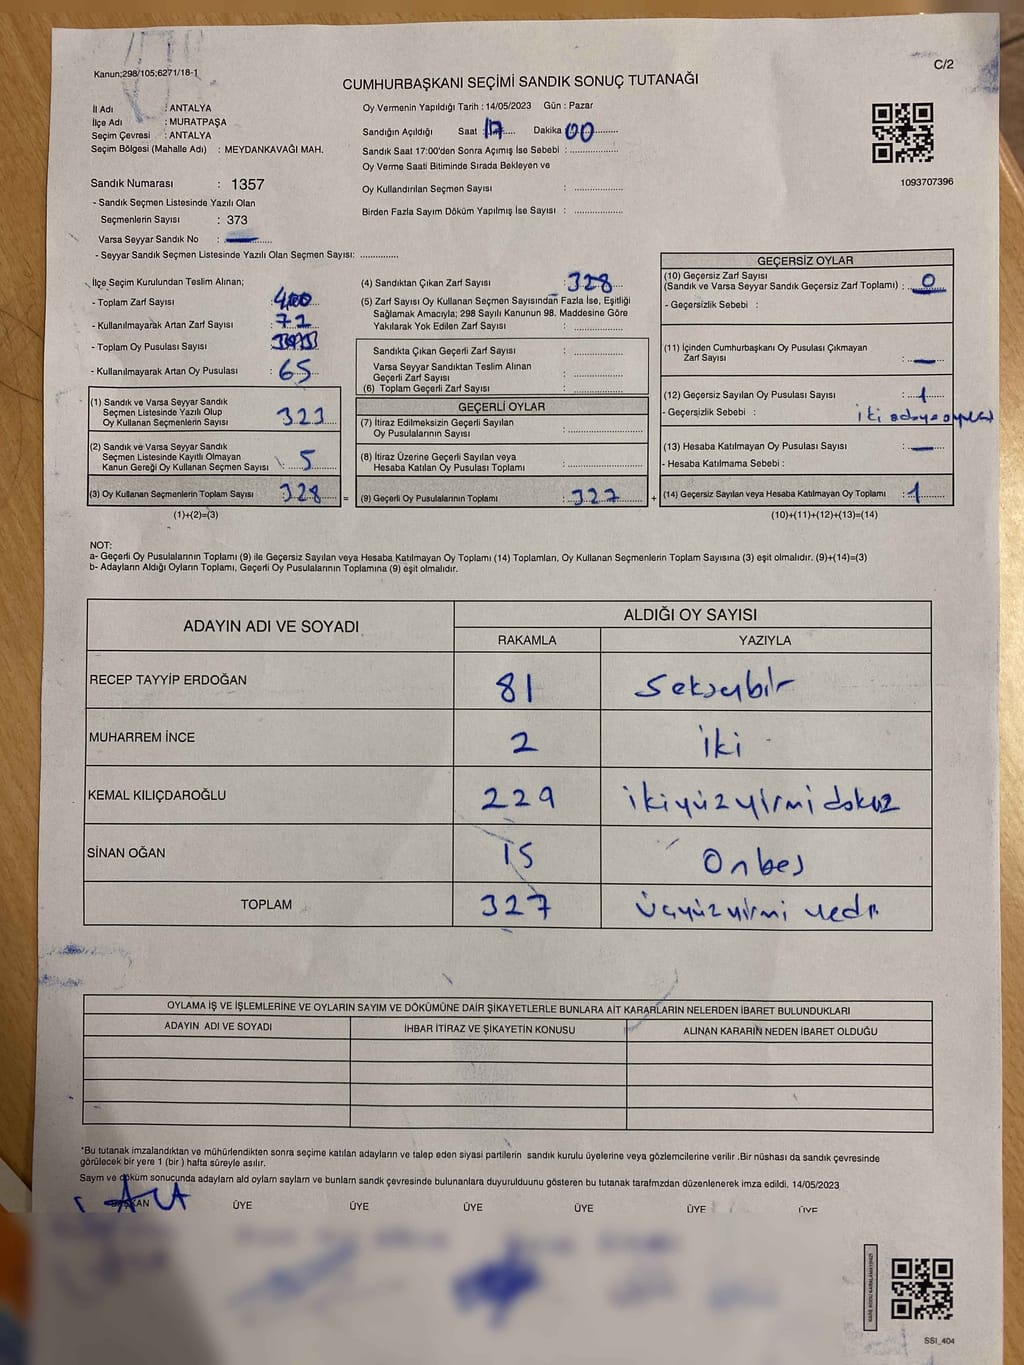 Kanun;298/105;6271/18-1
C/2
CUMHURBAŞKANI SEÇİMİ SANDIK SONUÇ TUTANAĞI
İl Adı : ANTALYA
İlçe Adı : MURATPAŞA
Seçim Çevresi : ANTALYA
Seçim Bölgesi (Mahalle Adı) : MEYDANKAVAĞI MAH.
Oy Vermenin Yapıldığı Tarih : 14/05/2023 Gün : Pazar
Sandığın Açıldığı Saat 17 Dakika 00
Sandık Saat 17:00'den Sonra Açımış İse Sebebi :
Oy Verme Saati Bitiminde Sırada Bekleyen ve
Oy Kullandırılan Seçmen Sayısı :
Birden Fazla Sayım Döküm Yapılmış İse Sayısı :
1093707396
Sandık Numarası : 1357
- Sandık Seçmen Listesinde Yazılı Olan
Seçmenlerin Sayısı : 373
Varsa Seyyar Sandık No :
- Seyyar Sandık Seçmen Listesinde Yazılı Olan Seçmen Sayısı:
İlçe Seçim Kurulundan Teslim Alınan;
- Toplam Zarf Sayısı : 400
- Kullanılmayarak Artan Zarf Sayısı : 72
- Toplam Oy Pusulası Sayısı :
- Kullanılmayarak Artan Oy Pusulası : 65
(1) Sandık ve Varsa Seyyar Sandık
Seçmen Listesinde Yazılı Olup
Oy Kullanan Seçmenlerin Sayısı : 323
(2) Sandık ve Varsa Seyyar Sandık
Seçmen Listesinde Kayıtlı Olmayan
Kanun Gereği Oy Kullanan Seçmen Sayısı : 5
(3) Oy Kullanan Seçmenlerin Toplam Sayısı : 328 =
(1)+(2)=(3)
(4) Sandıktan Çıkan Zarf Sayısı : 328
(5) Zarf Sayısı Oy Kullanan Seçmen Sayısından Fazla İse, Eşitliği
Sağlamak Amacıyla; 298 Sayılı Kanunun 98. Maddesine Göre
Yakılarak Yok Edilen Zarf Sayısı :
Sandıkta Çıkan Geçerli Zarf Sayısı :
Varsa Seyyar Sandıktan Teslim Alınan
Geçerli Zarf Sayısı :
(6) Toplam Geçerli Zarf Sayısı :
GEÇERLİ OYLAR
(7) İtiraz Edilmeksizin Geçerli Sayılan
Oy Pusulalarının Sayısı :
(8) İtiraz Üzerine Geçerli Sayılan veya
Hesaba Katılan Oy Pusulası Toplamı :
(9) Geçerli Oy Pusulalarının Toplamı : 327 +
GEÇERSİZ OYLAR
(10) Geçersiz Zarf Sayısı
(Sandık ve Varsa Seyyar Sandık Geçersiz Zarf Toplamı) : 0
- Geçersizlik Sebebi :
(11) İçinden Cumhurbaşkanı Oy Pusulası Çıkmayan
Zarf Sayısı : —
(12) Geçersiz Sayılan Oy Pusulası Sayısı : 1
- Geçersizlik Sebebi : iki adaya oy
(13) Hesaba Katılmayan Oy Pusulası Sayısı : —
- Hesaba Katılmama Sebebi :
(14) Geçersiz Sayılan veya Hesaba Katılmayan Oy Toplamı : 1
(10)+(11)+(12)+(13)=(14)
NOT:
a- Geçerli Oy Pusulalarının Toplamı (9) ile Geçersiz Sayılan veya Hesaba Katılmayan Oy Toplamı (14) Toplamları, Oy Kullanan Seçmenlerin Toplam Sayısına (3) eşit olmalıdır. (9)+(14)=(3)
b- Adayların Aldığı Oyların Toplamı, Geçerli Oy Pusulalarının Toplamına (9) eşit olmalıdır.
ADAYIN ADI VE SOYADI
ALDIĞI OY SAYISI
RAKAMLA YAZIYLA
RECEP TAYYİP ERDOĞAN 81 Seksenbir
MUHARREM İNCE 2 iki
KEMAL KILIÇDAROĞLU 229 ikiyüzyirmidokuz
SİNAN OĞAN 15 Onbeş
TOPLAM 327 üçyüzyirmi yedi
OYLAMA İŞ VE İŞLEMLERİNE VE OYLARIN SAYIM VE DÖKÜMÜNE DAİR ŞİKAYETLERLE BUNLARA AİT KARARLARIN NELERDEN İBARET BULUNDUKLARI
ADAYIN ADI VE SOYADI İHBAR İTİRAZ VE ŞİKAYETİN KONUSU ALINAN KARARIN NEDEN İBARET OLDUĞU
*Bu tutanak imzalandıktan ve mühürlendikten sonra seçime katılan adayların ve talep eden siyasi partilerin sandık kurulu üyelerine veya gözlemcilerine verilir .Bir nüshası da sandık çevresinde
görülecek bir yere 1 (bir ) hafta süreyle asılır.
Sayım ve döküm sonucunda adayların ald oyların sayların ve bunların sandık çevresinde bulunanlara duyurulduunu gösteren bu tutanak tarafmzdan düzenlenerek imza edildi. 14/05/2023
BAŞKAN ÜYE ÜYE ÜYE ÜYE ÜYE ÜYE
SSI_404